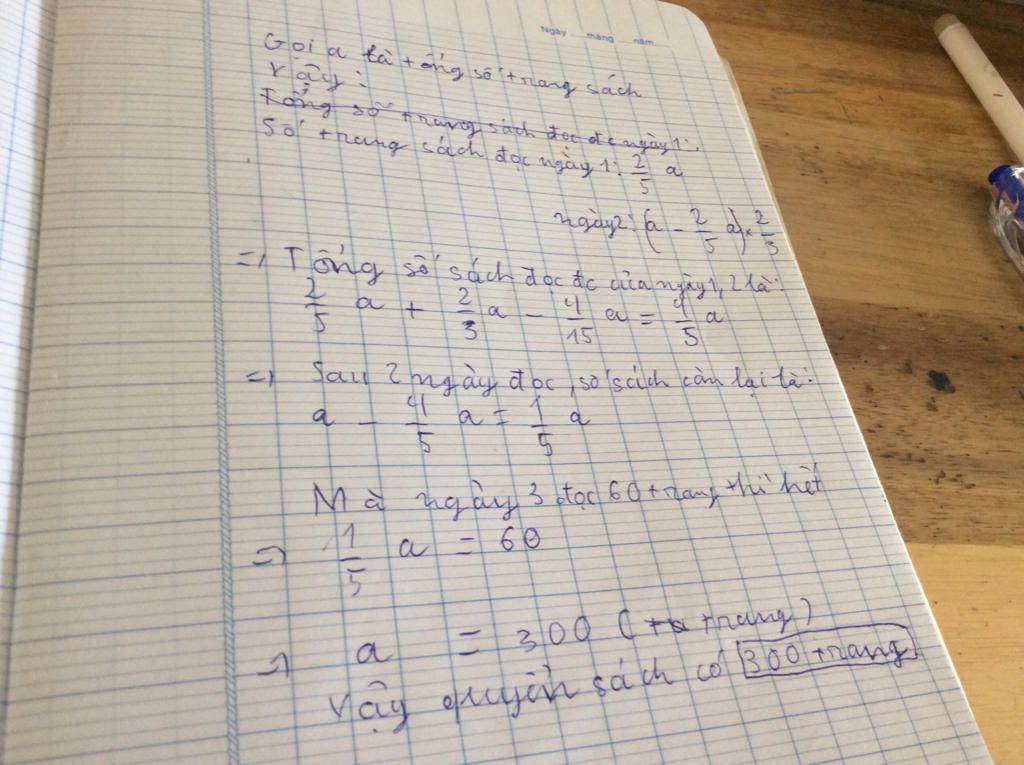 Ngày tháng năm
Gọi a là tổng số trang sách
Vậy:
Tổng số trang sách đọc đc ngày 1:
Số trang sách đọc ngày 1: 2/5 a
ngày 2: (a - 2/5 a) × 2/3
=> Tổng số sách đọc đc của ngày 1, 2 là:
2/5 a + 2/3 a - 4/15 a = 4/5 a
=> Sau 2 ngày đọc, số sách còn lại là:
a - 4/5 a = 1/5 a
Mà ngày 3 đọc 60 trang thì hết
=> 1/5 a = 60
=> a = 300 (trang)
Vậy quyển sách có 300 trang